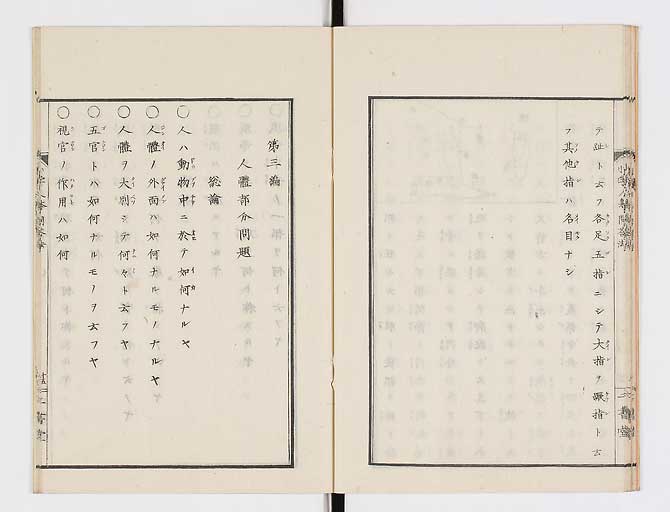 テ趾ト云フ各足五指ニシテ大指ヲ踇指ト云
フ其他指ハ名目ナシ
第三編
人體部分問題
総論
〇人ハ動物中ニ於テ如何ナルヤ
〇人體ノ外面ハ如何ナルモノナルヤ
〇人體ヲ大別シテ何々ト云フヤ
〇五官トハ如何ナルモノヲ云フヤ
〇視官ノ作用ハ如何